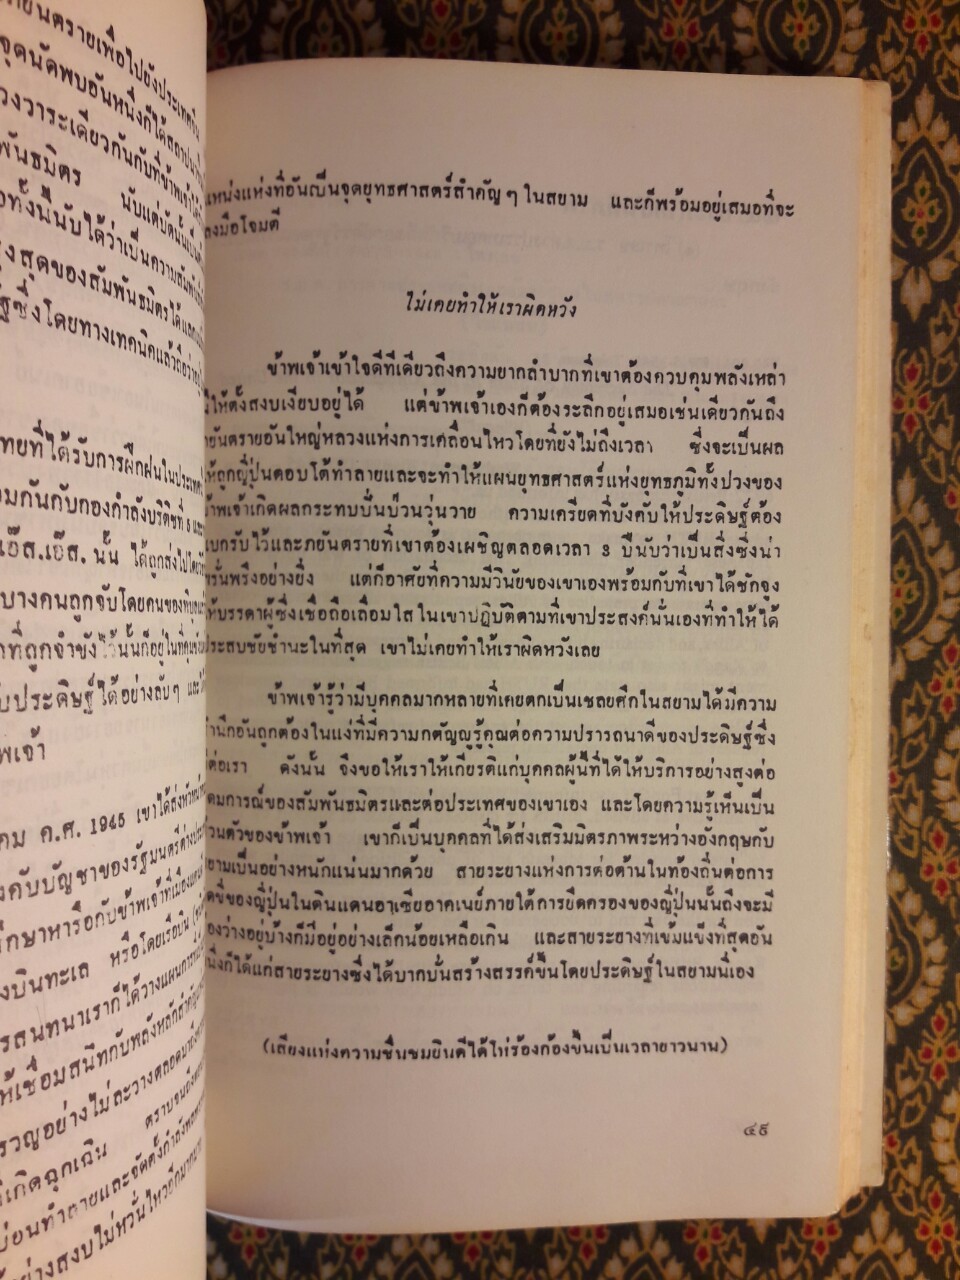 ยันตรายเพื่อไปยังประเทศจีน
จุดนัดพบอันหนึ่งก็ได้สถาปนา
วงวาระเดียวกันกับที่ข้าพเจ้าได้
พันธมิตร นับแต่บัดนั้นเป็นต้น
ทั้งนี้นับได้ว่าเป็นความสัมพันธ์
สูงสุดของสัมพันธมิตรได้
ซึ่งโดยทางเทคนิคแล้วถือว่า
ทยที่ได้รับการฝึกฝนในประเทศ
มกันกับกองกำลังบริติชที่
เอ๊ส.เอ๊ส. นั้น ได้ถูกส่งไปโดย
บางคนถูกจับโดยคนของ
กที่ถูกจำขังไว้นั้นก็อยู่ในที่
ประดิษฐ์ได้อย่างลับๆ และ
พเจ้า
คม ค.ศ. 1945 เขาได้ส่งหัวหน้า
งคับบัญชาของรัฐมนตรีต่างประเทศ
ึกษาหารือกับข้าพเจ้าที่เมือง
งบินทะเล หรือโดยเรือบิน
รสนทนาเราก็ได้วางแผนการ
ห้เชื่อมสนิทกับพลังหลักสำคัญ
รวญอย่างไม่ละวางตลอดมา
เกิดฉุกเฉิน ตราบจนถึง
บ่อนทำลายและจัดตั้งกำลัง
อย่างสงบไม่หวั่นไหว
แหน่งแห่งที่อันเป็นจุดยุทธศาสตร์สำคัญๆ ในสยาม และก็พร้อมอยู่เสมอที่จะ
ลงมือโจมตี
ไม่เคยทำให้เราผิดหวัง
ข้าพเจ้าเข้าใจดีทีเดียวถึงความยากลำบากที่เขาต้องควบคุมพลังเหล่า
นี้ให้ตั้งสงบเงียบอยู่ได้ แต่ข้าพเจ้าเองก็ต้องระลึกอยู่เสมอเช่นเดียวกันถึง
ภยันตรายอันใหญ่หลวงแห่งการเคลื่อนไหวโดยที่ยังไม่ถึงเวลา ซึ่งจะเป็นผล
ให้ถูกญี่ปุ่นตอบโต้ทำลายและจะทำให้แผนยุทธศาสตร์แห่งยุทธภูมิทั้งปวงของ
ข้าพเจ้าเกิดผลกระทบปั่นป่วนวุ่นวาย ความเครียดที่บังคับให้ประดิษฐ์ต้อง
แบกรับไว้และภยันตรายที่เขาต้องเผชิญตลอดเวลา 3 ปีนับว่าเป็นสิ่งซึ่งน่า
พรั่นพรึงอย่างยิ่ง แต่ก็อาศัยที่ความมีวินัยของเขาเองพร้อมกับที่เขาได้ชักจูง
ให้บรรดาผู้ซึ่งเชื่อถือเลื่อมใสในเขาปฏิบัติตามที่เขาประสงค์นั่นเองที่ทำให้ได้
ประสบชัยชำนะในที่สุด เขาไม่เคยทำให้เราผิดหวังเลย
ข้าพเจ้ารู้ว่ามีบุคคลมากหลายที่เคยตกเป็นเชลยศึกในสยามได้มีความ
สำนึกอันถูกต้องในแง่ที่มีความกตัญญูรู้คุณต่อความปรารถนาดีของประดิษฐ์ซึ่ง
มีต่อเรา ดังนั้น จึงขอให้เราให้เกียรติแก่บุคคลผู้นี้ที่ได้ให้บริการอย่างสูงต่อ
อุดมการณ์ของสัมพันธมิตรและต่อประเทศของเขาเอง และโดยความรู้เห็นเป็น
ส่วนตัวของข้าพเจ้า เขาก็เป็นบุคคลที่ได้ส่งเสริมมิตรภาพระหว่างอังกฤษกับ
สยามเป็นอย่างหนักแน่นมากด้วย สายระยางแห่งการต่อต้านในท้องถิ่นต่อการ
กดขี่ของญี่ปุ่นในดินแดนอาเซียอาคเนย์ภายใต้การยึดครองของญี่ปุ่นนั้นถึงจะมี
ช่องว่างอยู่บ้างก็มีอยู่อย่างเล็กน้อยเหลือเกิน และสายระยางที่เข้มแข็งที่สุดอัน
หนึ่งก็ได้แก่สายระยางซึ่งได้บากบั่นสร้างสรรค์ขึ้นโดยประดิษฐ์ในสยามนี่เอง
(เสียงแห่งความชื่นชมยินดีได้โห่ร้องก้องขึ้นเป็นเวลายาวนาน)
๔๕